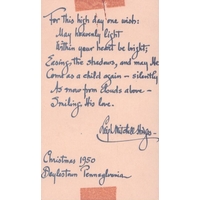 For this high day one wish:
May heavenly light
Within your heart be bright,
Easing the shadows, and may He
Come as a child again — silently
As snow from clouds above —
Smiling His love.
Christmas 1950
Doylestown Pennsylvania